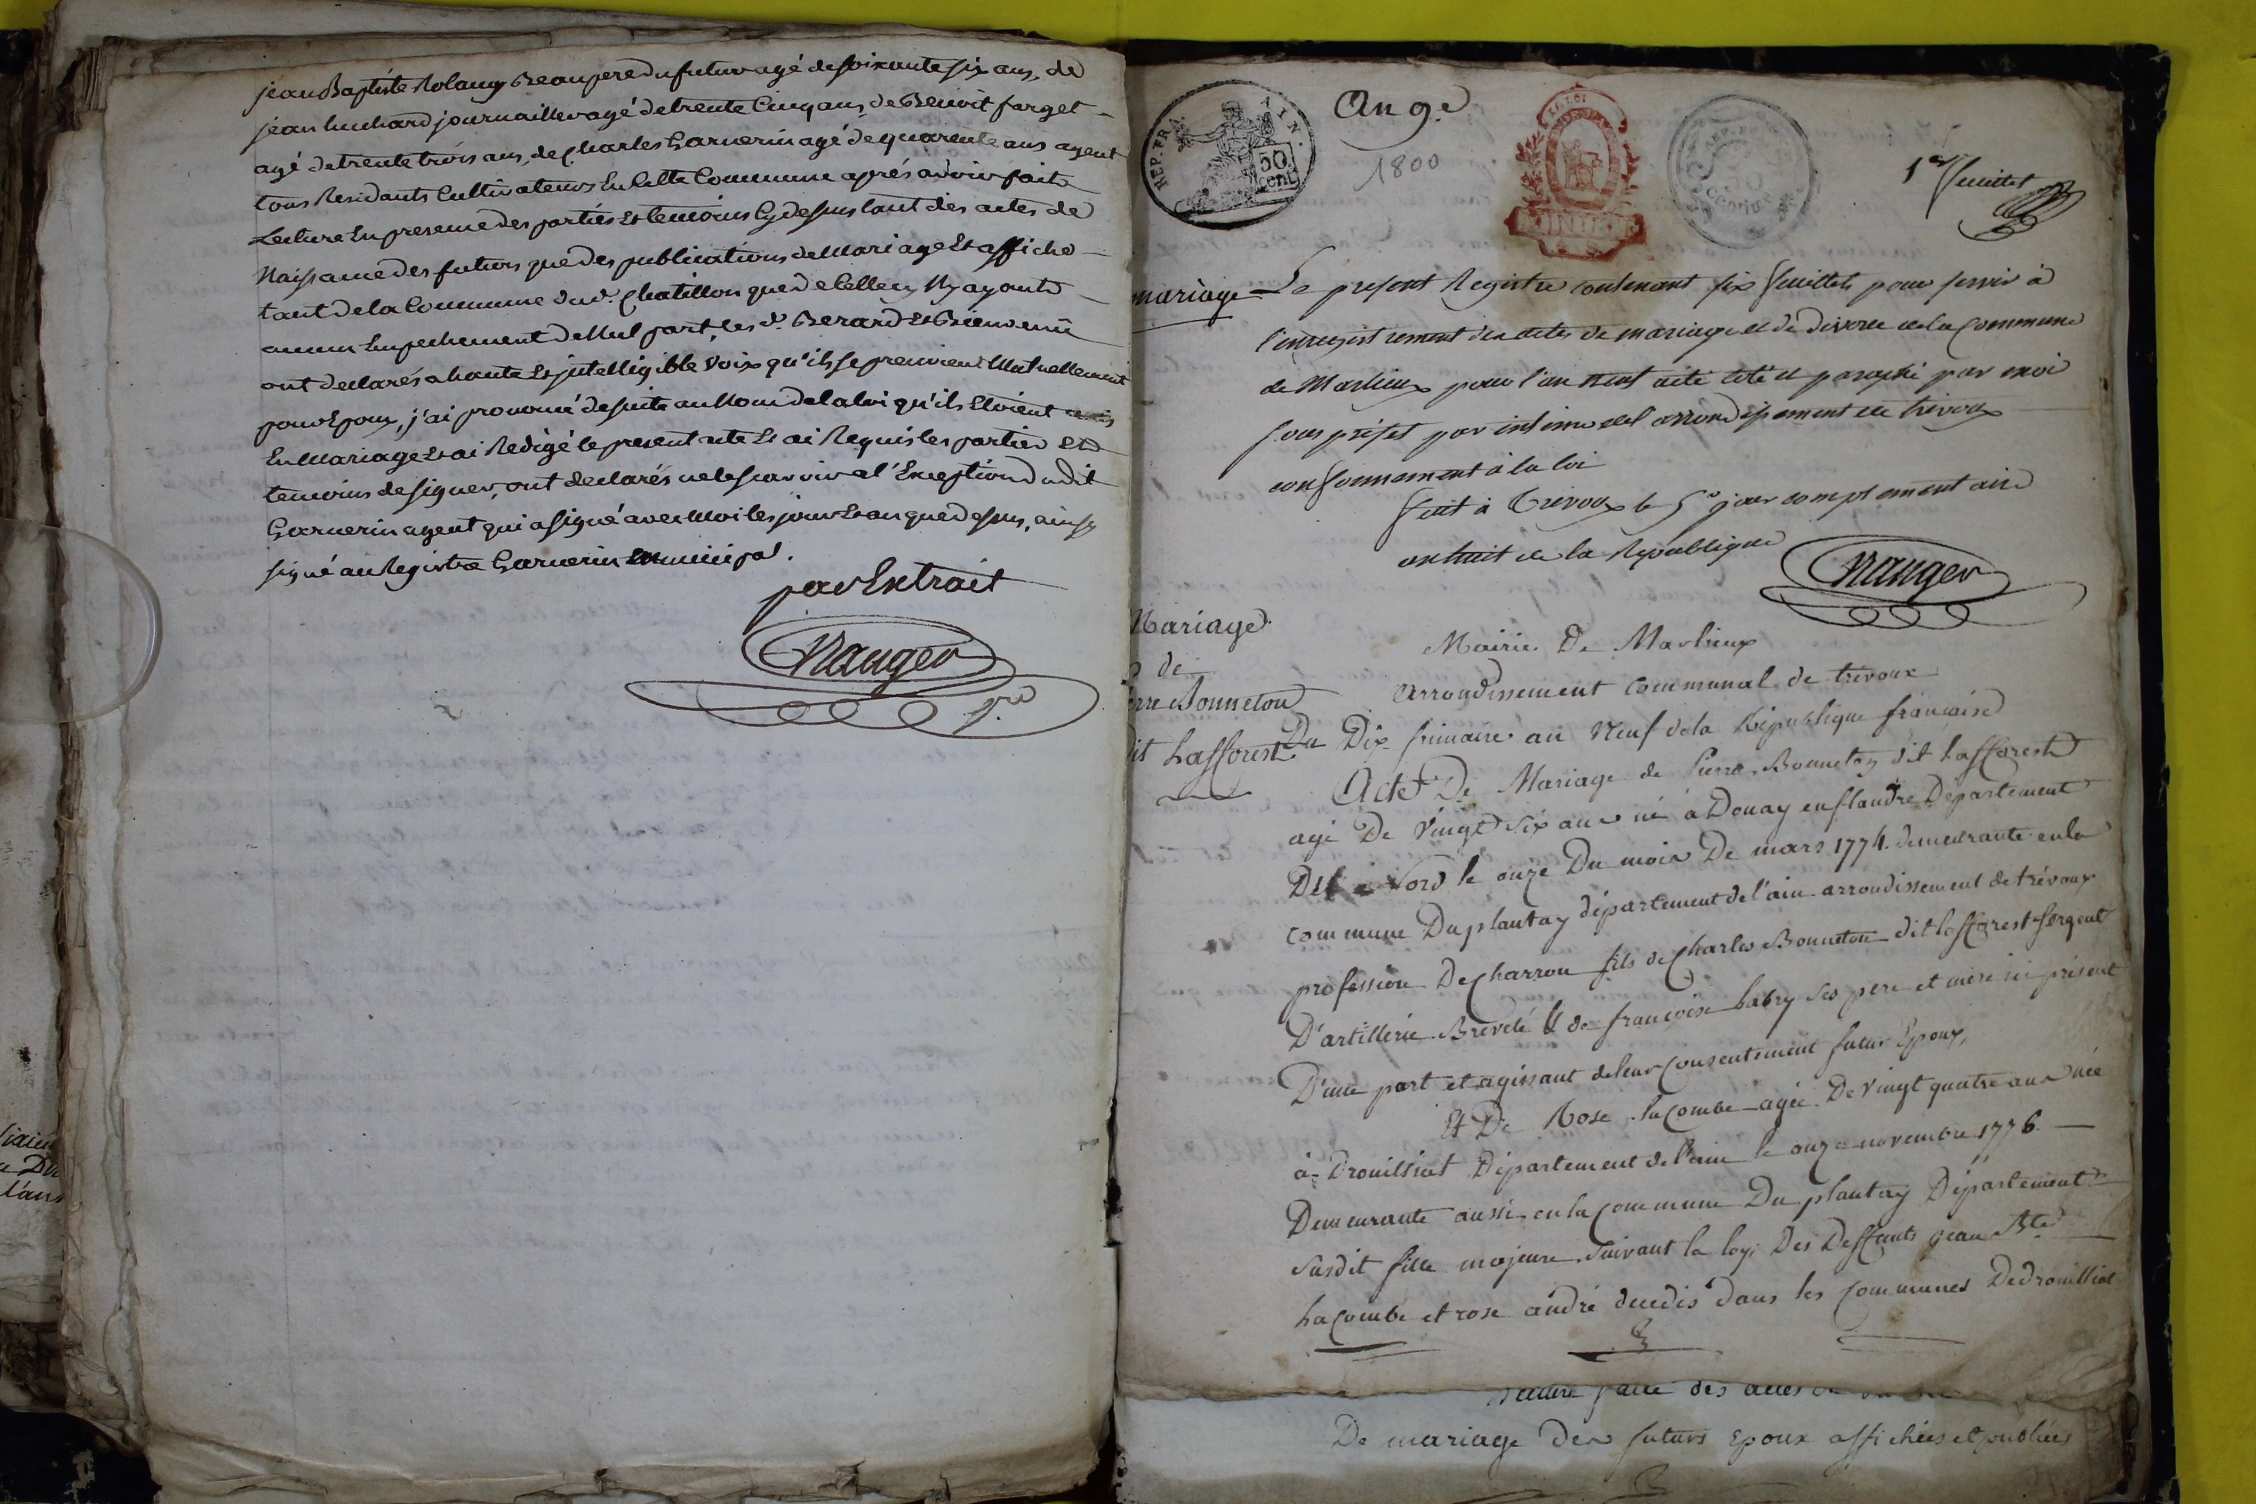 jean Baptiste Rolang Beaupere du futur agé de soixante six ans, de
jean huchard journaillier agé de trente Cinq ans, de Benoit farget
agé de trente trois ans, de Charles Garnerin agé de quarente ans agent
tous Residants Cultivateurs En Cette Commune aprés avoir fait
Lecture En presence des parties Et temoins Cy dessus tant des actes de
Naissance des futurs que des publications de Mariage Et affiche
tant de la Commune dud. Chatillon que de Celle cy N'y ayant
aucun Empechement de Nul part, les d. Berard Et Bienvenü
ont declarés a haute Et jntelligible Voix qu'ils se prennient Mutuellement
pour Epoux, j'ai prononcé de suite au Nom de la loi qu'ils Etoient unis
En Mariage Et ai Redigé le present acte Et ai Requis les parties Et
temoins de signer, ont declarés ne le scavoir a l'Exception dudit
Garnerin agent qui a signé avec Moi les jour Et an que dessus, ainsy
signé au Registre Garnerin municipal.
par Extrait
Nauger
An 9.e
1800
REP. FRA.
AIN.
50
cent.
1er feuillet
mariage
Le present Registre contenant six feuillets pour servir à
l'enregistrement des actes de mariage et de divorce de la Commune
de Marlieux pour l'an neuf a été coté et paraphé par moi
sous préfet par interim de l'arrondissement de trevoux
conformement à la loi
fait à Trevoux le 5e jour complementaire
an huit de la Republique
Nauger
Mariage
de
erre Bonneton
dit Lafforest
Mairie De Marlieux
arrondissement communal de trévoux
Du Dix frimaire an Neuf de la République française
Acte De Mariage de Pierre Bonneton dit Lafforest
agé De Vingt Six ans né à Douay en flandre Département
Du Nord le onze Du mois De mars 1774. demeurante en la
commune Du plantay département de l'ain arrondissement de trévoux
profession De Charron fils de Charles Bonneton dit lafforest sergent
D'artillerie Breveté Et de françoise Labry ses pere et mere ici présent
D'une part et agissant de leur Consentement futur Epoux,
Et De Rose Lacombe agée De Vingt quatre ans née
à Drouilliat Département de l'ain le onze novembre 1776
Demeurante aussi en la Commune Du plantay Département
Susdit fille majeure Suivant la loy, Des Deffunts jean Bte
Lacombe et rose andré decedis dans les communes De drouilliat
lecture faite des actes
De mariage des futurs Epoux affichées et publiées